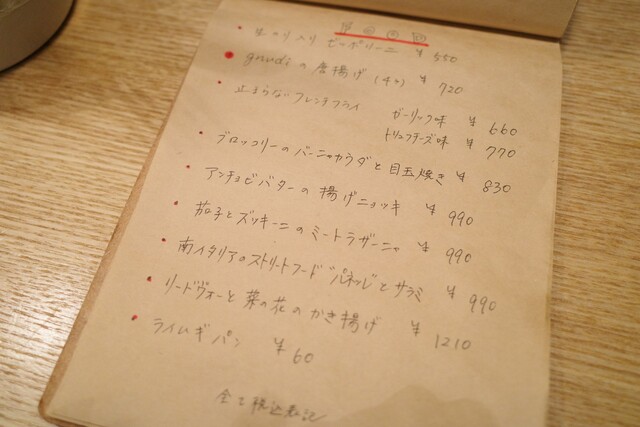 生のり入り ゼッポリーニ ¥550
gnudiの唐揚げ (4ヶ) ¥720
止まらないフレンチフライ ガーリック味 ¥660
トリュフチーズ味 ¥770
ブロッコリーのバーニャカウダと目玉焼き ¥830
アンチョビバターの揚げニョッキ ¥990
茄子とズッキーニのミートラザーニャ ¥990
南イタリアのストリートフード パネッレとサラミ ¥990
リードヴォーと菜の花のかき揚げ ¥1210
ライムギパン ¥60
全て税込表記